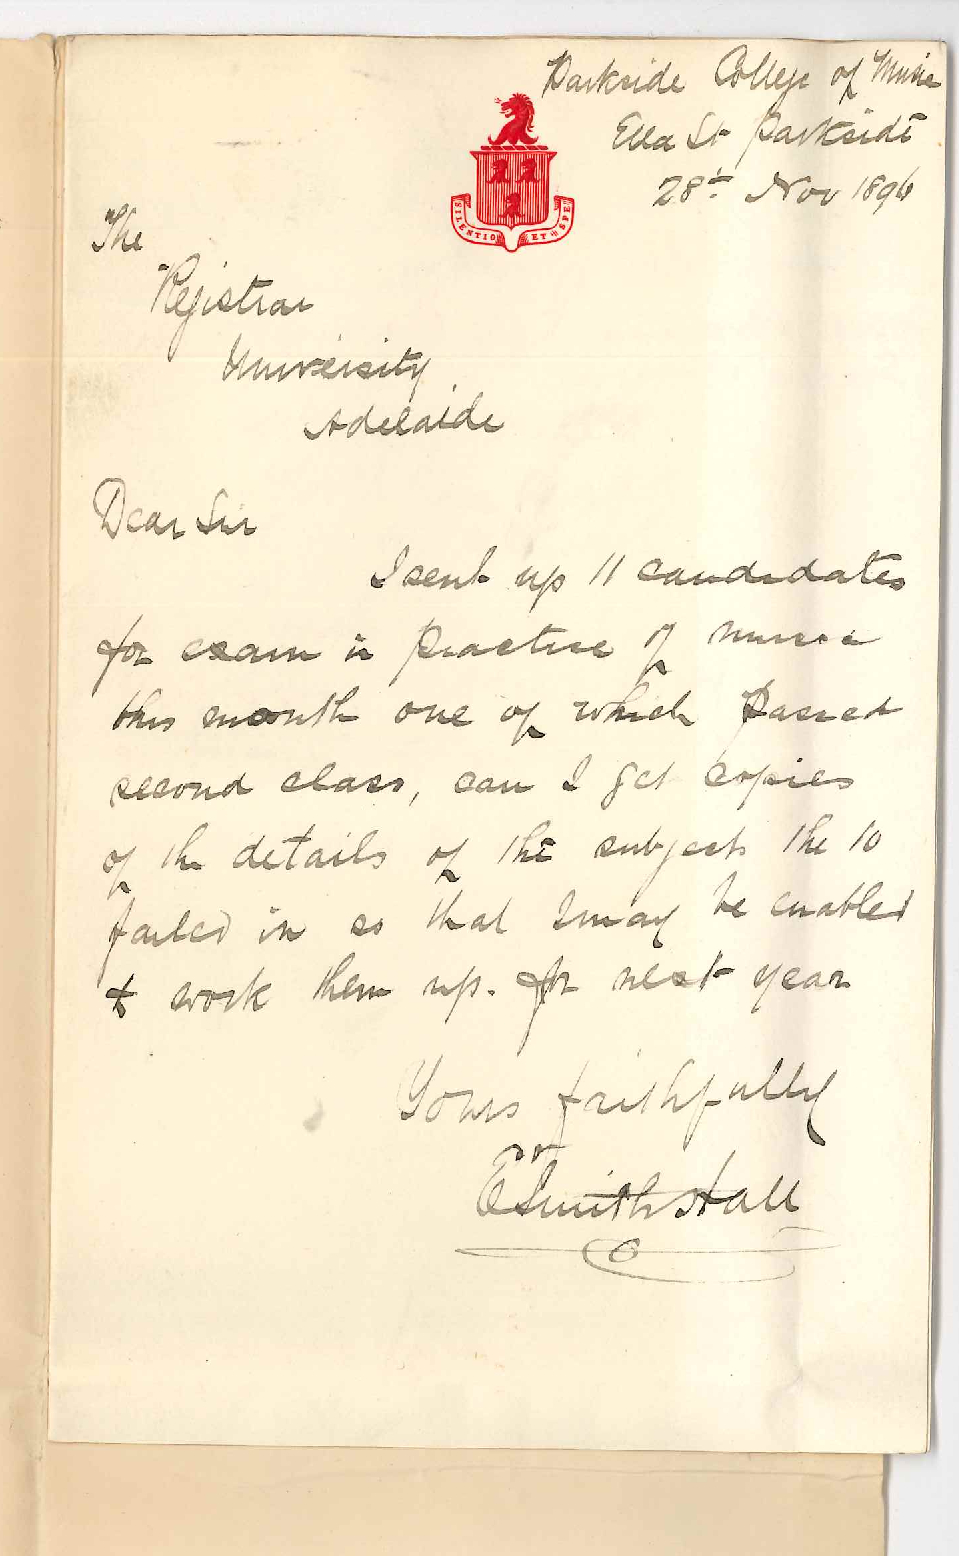 Parkside College of Music
Ella St Parkside
28th Nov 1896
SILENTIO ET SPE
The
Registrar
University
Adelaide
Dear Sir
I sent up 11 candidates
for exam in practice of music
this month one of which passed
second class, can I get copies
of the details of the subjects the 10
failed in so that I may be enabled
to work them up. for next year
Yours faithfully
E Smith Hall